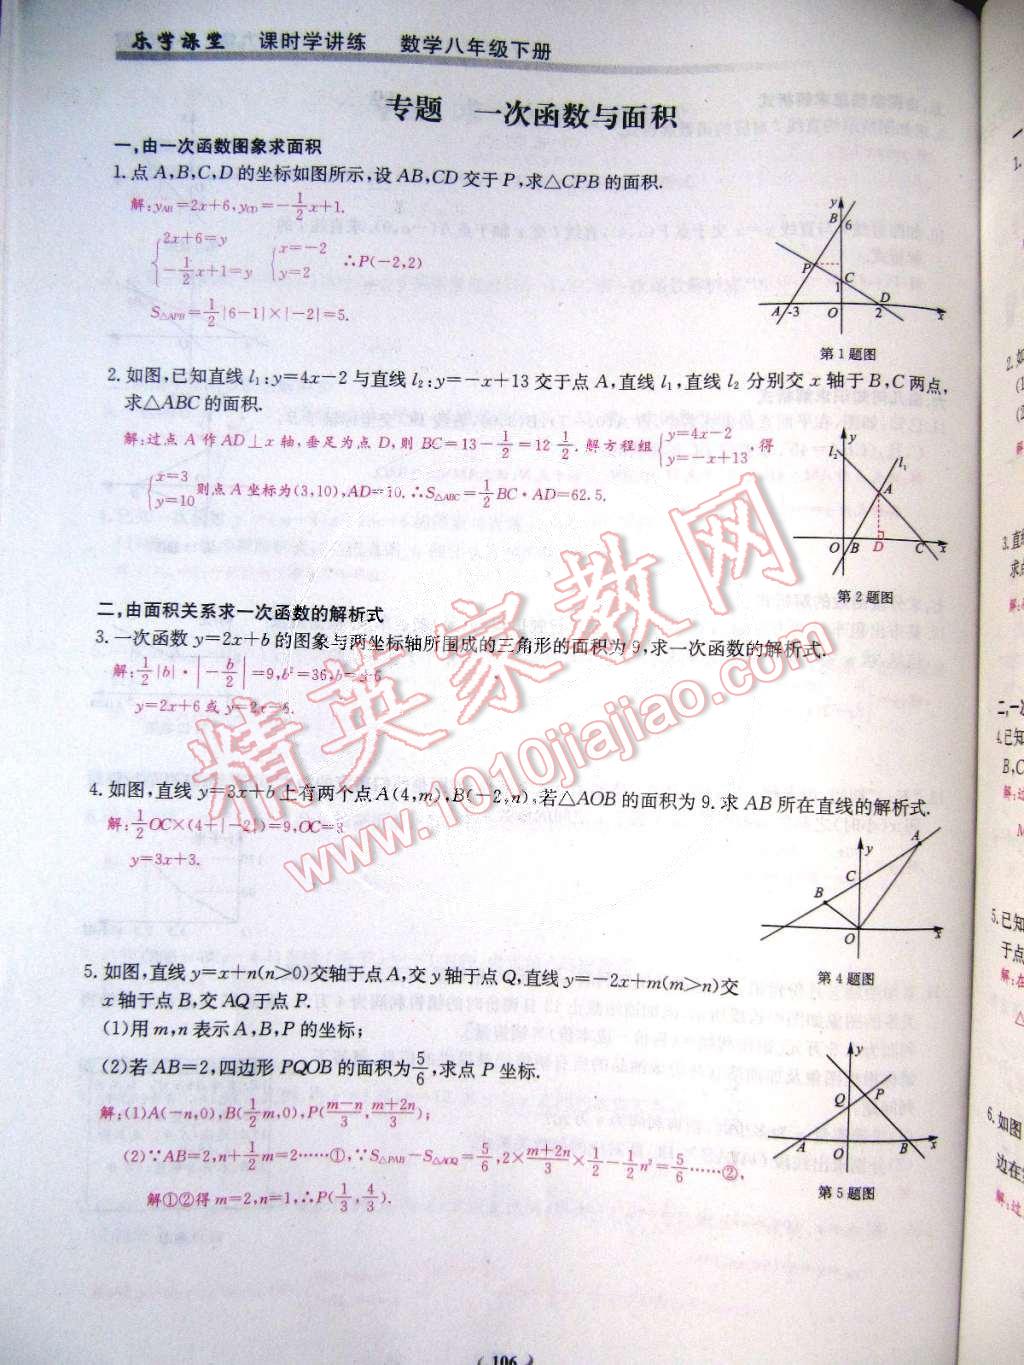 乐学课堂 课时学讲练 数学八年级下册
专题 一次函数与面积
一,由一次函数图象求面积
1.点A,B,C,D的坐标如图所示,设AB,CD交于P,求△CPB的面积.
解:y_AB=2x+6,y_CD=-1/2x+1.
{2x+6=y {x=-2
-1/2x+1=y y=2 ∴P(-2,2)
S△APB=1/2|6-1|×|-2|=5.
y
B
6
P
C
1
A -3 O 2 D x
第1题图
2.如图,已知直线l₁:y=4x-2与直线l₂:y=-x+13交于点A,直线l₁,直线l₂分别交x轴于B,C两点,
求△ABC的面积.
解:过点A作AD⊥x轴,垂足为点D,则BC=13-1/2=12 1/2.解方程组{y=4x-2 y=-x+13,得
{x=3 y=10则点A坐标为(3,10),AD=10.∴S△ABC=1/2BC·AD=62.5.
y
l₂ l₁
A
O B D C x
第2题图
二,由面积关系求一次函数的解析式
3.一次函数y=2x+b的图象与两坐标轴所围成的三角形的面积为9,求一次函数的解析式.
解:1/2|b|·|-b/2|=9,b²=36,b=±6
y=2x+6或y=2x-6.
4.如图,直线y=3x+b上有两个点A(4,m),B(-2,n),若△AOB的面积为9.求AB所在直线的解析式.
解:1/2OC×(4+|-2|)=9,OC=3
y=3x+3.
A
y
C
B
O x
第4题图
5.如图,直线y=x+n(n>0)交轴于点A,交y轴于点Q,直线y=-2x+m(m>n)交
x轴于点B,交AQ于点P.
(1)用m,n表示A,B,P的坐标;
(2)若AB=2,四边形PQOB的面积为5/6,求点P坐标.
解:(1)A(-n,0),B(1/2m,0),P(m-n/3,m+2n/3);
(2)∵AB=2,n+1/2m=2……①,∵S△PAB-S△AOQ=5/6,2×m+2n/3×1/2-1/2n²=5/6……②,
解①②得m=2,n=1,∴P(1/3,4/3).
y
P
Q
A O B x
第5题图
106
精英家教网
www.1010jiajiao.com